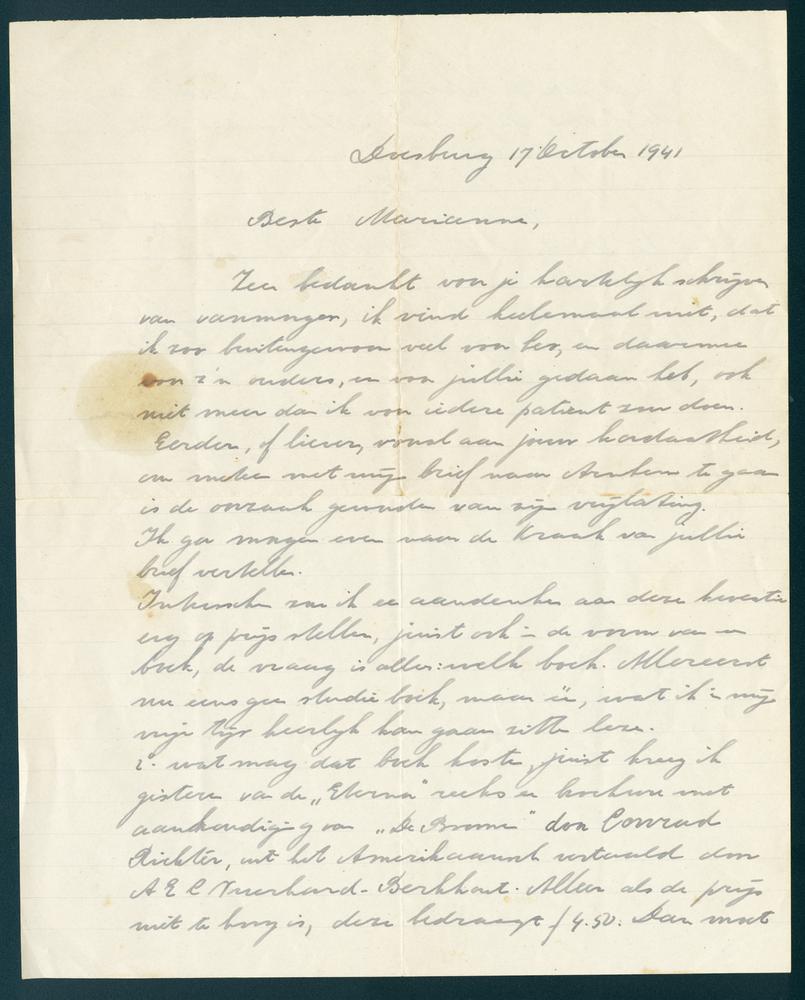 Doesburg 17 October 1941
Beste Marianne,
Zeer bedankt voor je hartelijk schrijven
van vanmorgen, ik vind heelemaal niet, dat
ik zoo buitengewoon veel voor Leo, en daarmee
voor z'n ouders, en voor jullie gedaan heb, ook
niet meer dan ik voor iedere patient zou doen.
Eerder, of liever, vooral aan jouw kordaatheid,
om meteen met mijn brief naar Arnhem te gaan
is de oorzaak geworden van zijn vrijlating.
Ik ga morgen even naar de Kraak van jullie
brief vertellen.
Intusschen zou ik een aandenken aan deze kwestie
erg op prijs stellen, juist ook in de vorm van een
boek, de vraag is alleen: welk boek. Allereerst
nu eens geen studieboek, maar iets, wat ik in mijn
vrije tijd heerlijk kan gaan zitten lezen.
2e wat mag dat boek kosten, juist kreeg ik
gisteren van de „Eterna" reeks een brochure met
aankondiging van „De Boomen" door Conrad
Richter, uit het Amerikaansch vertaald door
A E C Vuerhard-Berkhout. Alleen als de prijs
niet te hoog is, deze bedraagt f 4.50. Dan moet